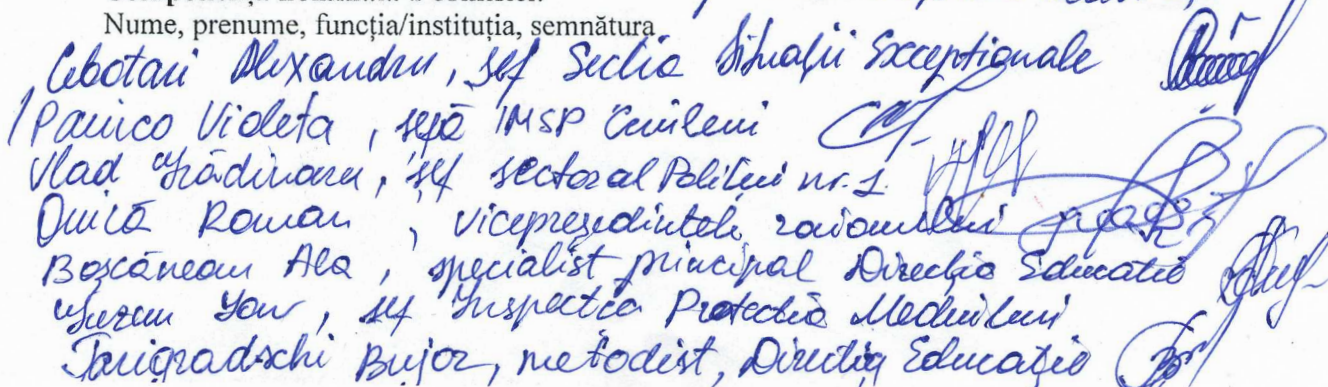 Nume, prenume, funcția/instituția, semnătura
Cebotari Alexandru, șef Secția Situații Excepționale
Panico Violeta, șefă IMSP
Vlad Grădinaru, șef sectoral Poliției nr. 1.
Onică Roman, vicepreședintele raionului
Boșcănean Ala, specialist principal Direcția Educație
șef Inspecția Protecția Mediului
Țarigradschi Bujor, metodist, Direcția Educație